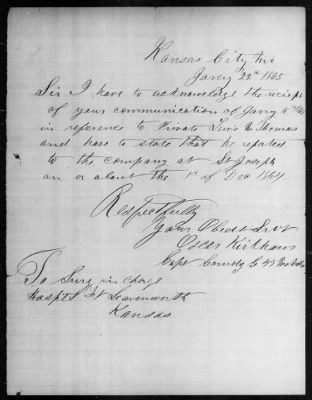 Kansas City Mo
Jany 22d 1865
Sir I have to acknowledge the reciept
of your communication of Jany
in reference to Private Lewis M Thomas
and have to state that he reported
to the company at St Joseph
on or about the 1st of Dec 1864
Respectfully
Your Obedt Servt
Capt Comdg Co 43
To Surg in charge
Hospital Ft Leavenworth
Kansas